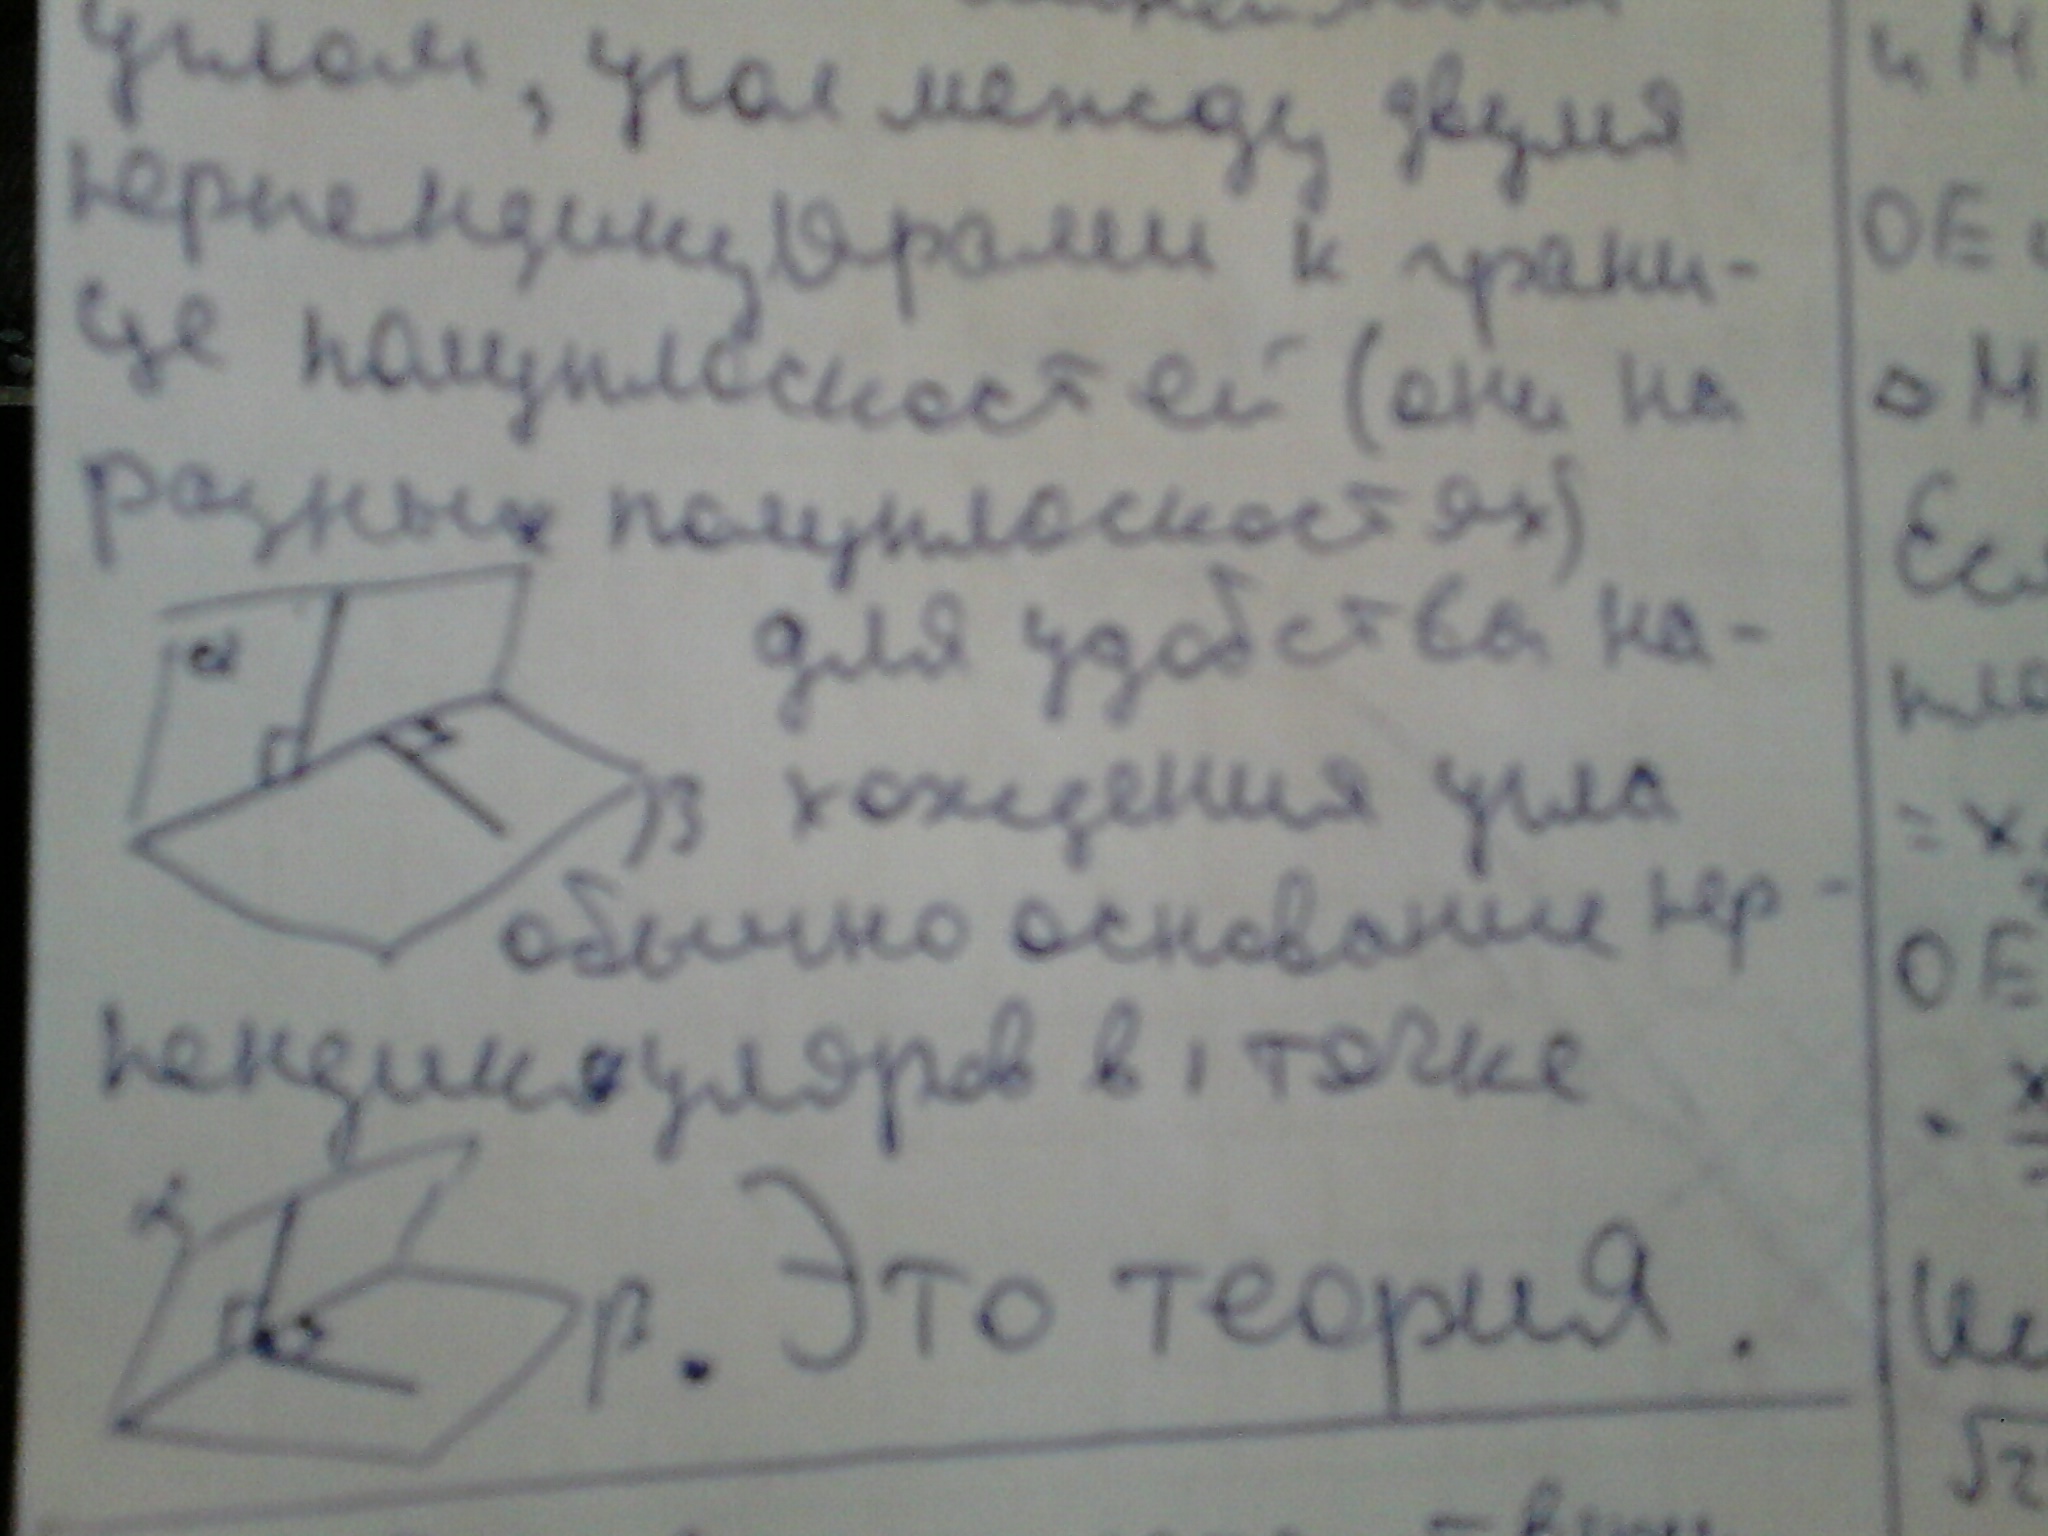 углом, угол между двумя
перпендикулярами к грани-
це полуплоскостей (они на
разных полуплоскостях)
α
для удобства на-
β хождения угла
обычно основание пер-
пендикуляров в 1 точке
α
β. Это теория.
и М
ОЕ
М
= х
ОЕ
х
√2